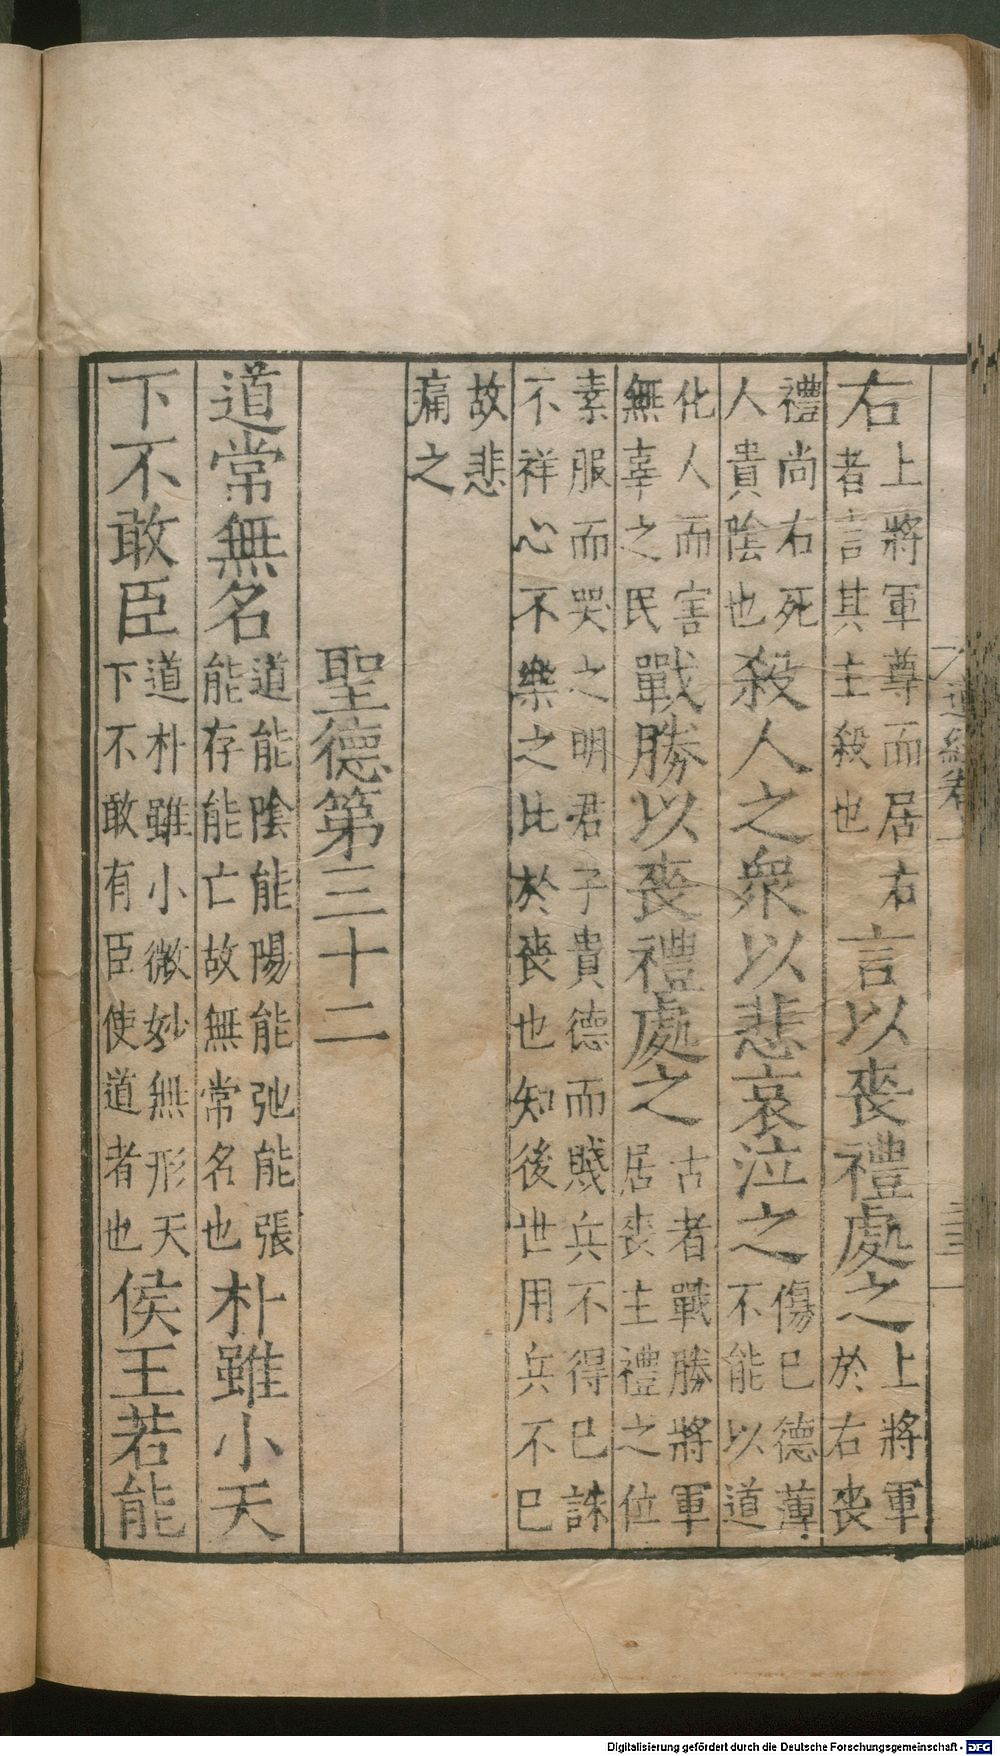 道經卷
右上將軍尊而居右者言其主殺也言以喪禮處之上將軍於右喪
禮尚右死人貴陰也殺人之衆以悲哀泣之傷已德薄不能以道
化人而害無辜之民戰勝以喪禮處之古者戰勝將軍居喪主禮之位
素服而哭之明君子貴德而賤兵不得已誅不祥心不樂之比於喪也知後世用兵不已
故悲痛之
聖德第三十二
道常無名道能陰能陽能弛能張能存能亡故無常名也朴雖小天
下不敢臣道朴雖小微妙無形天下不敢有臣使道者也侯王若能
Digitalisierung gefördert durch die Deutsche Forschungsgemeinschaft - DFG